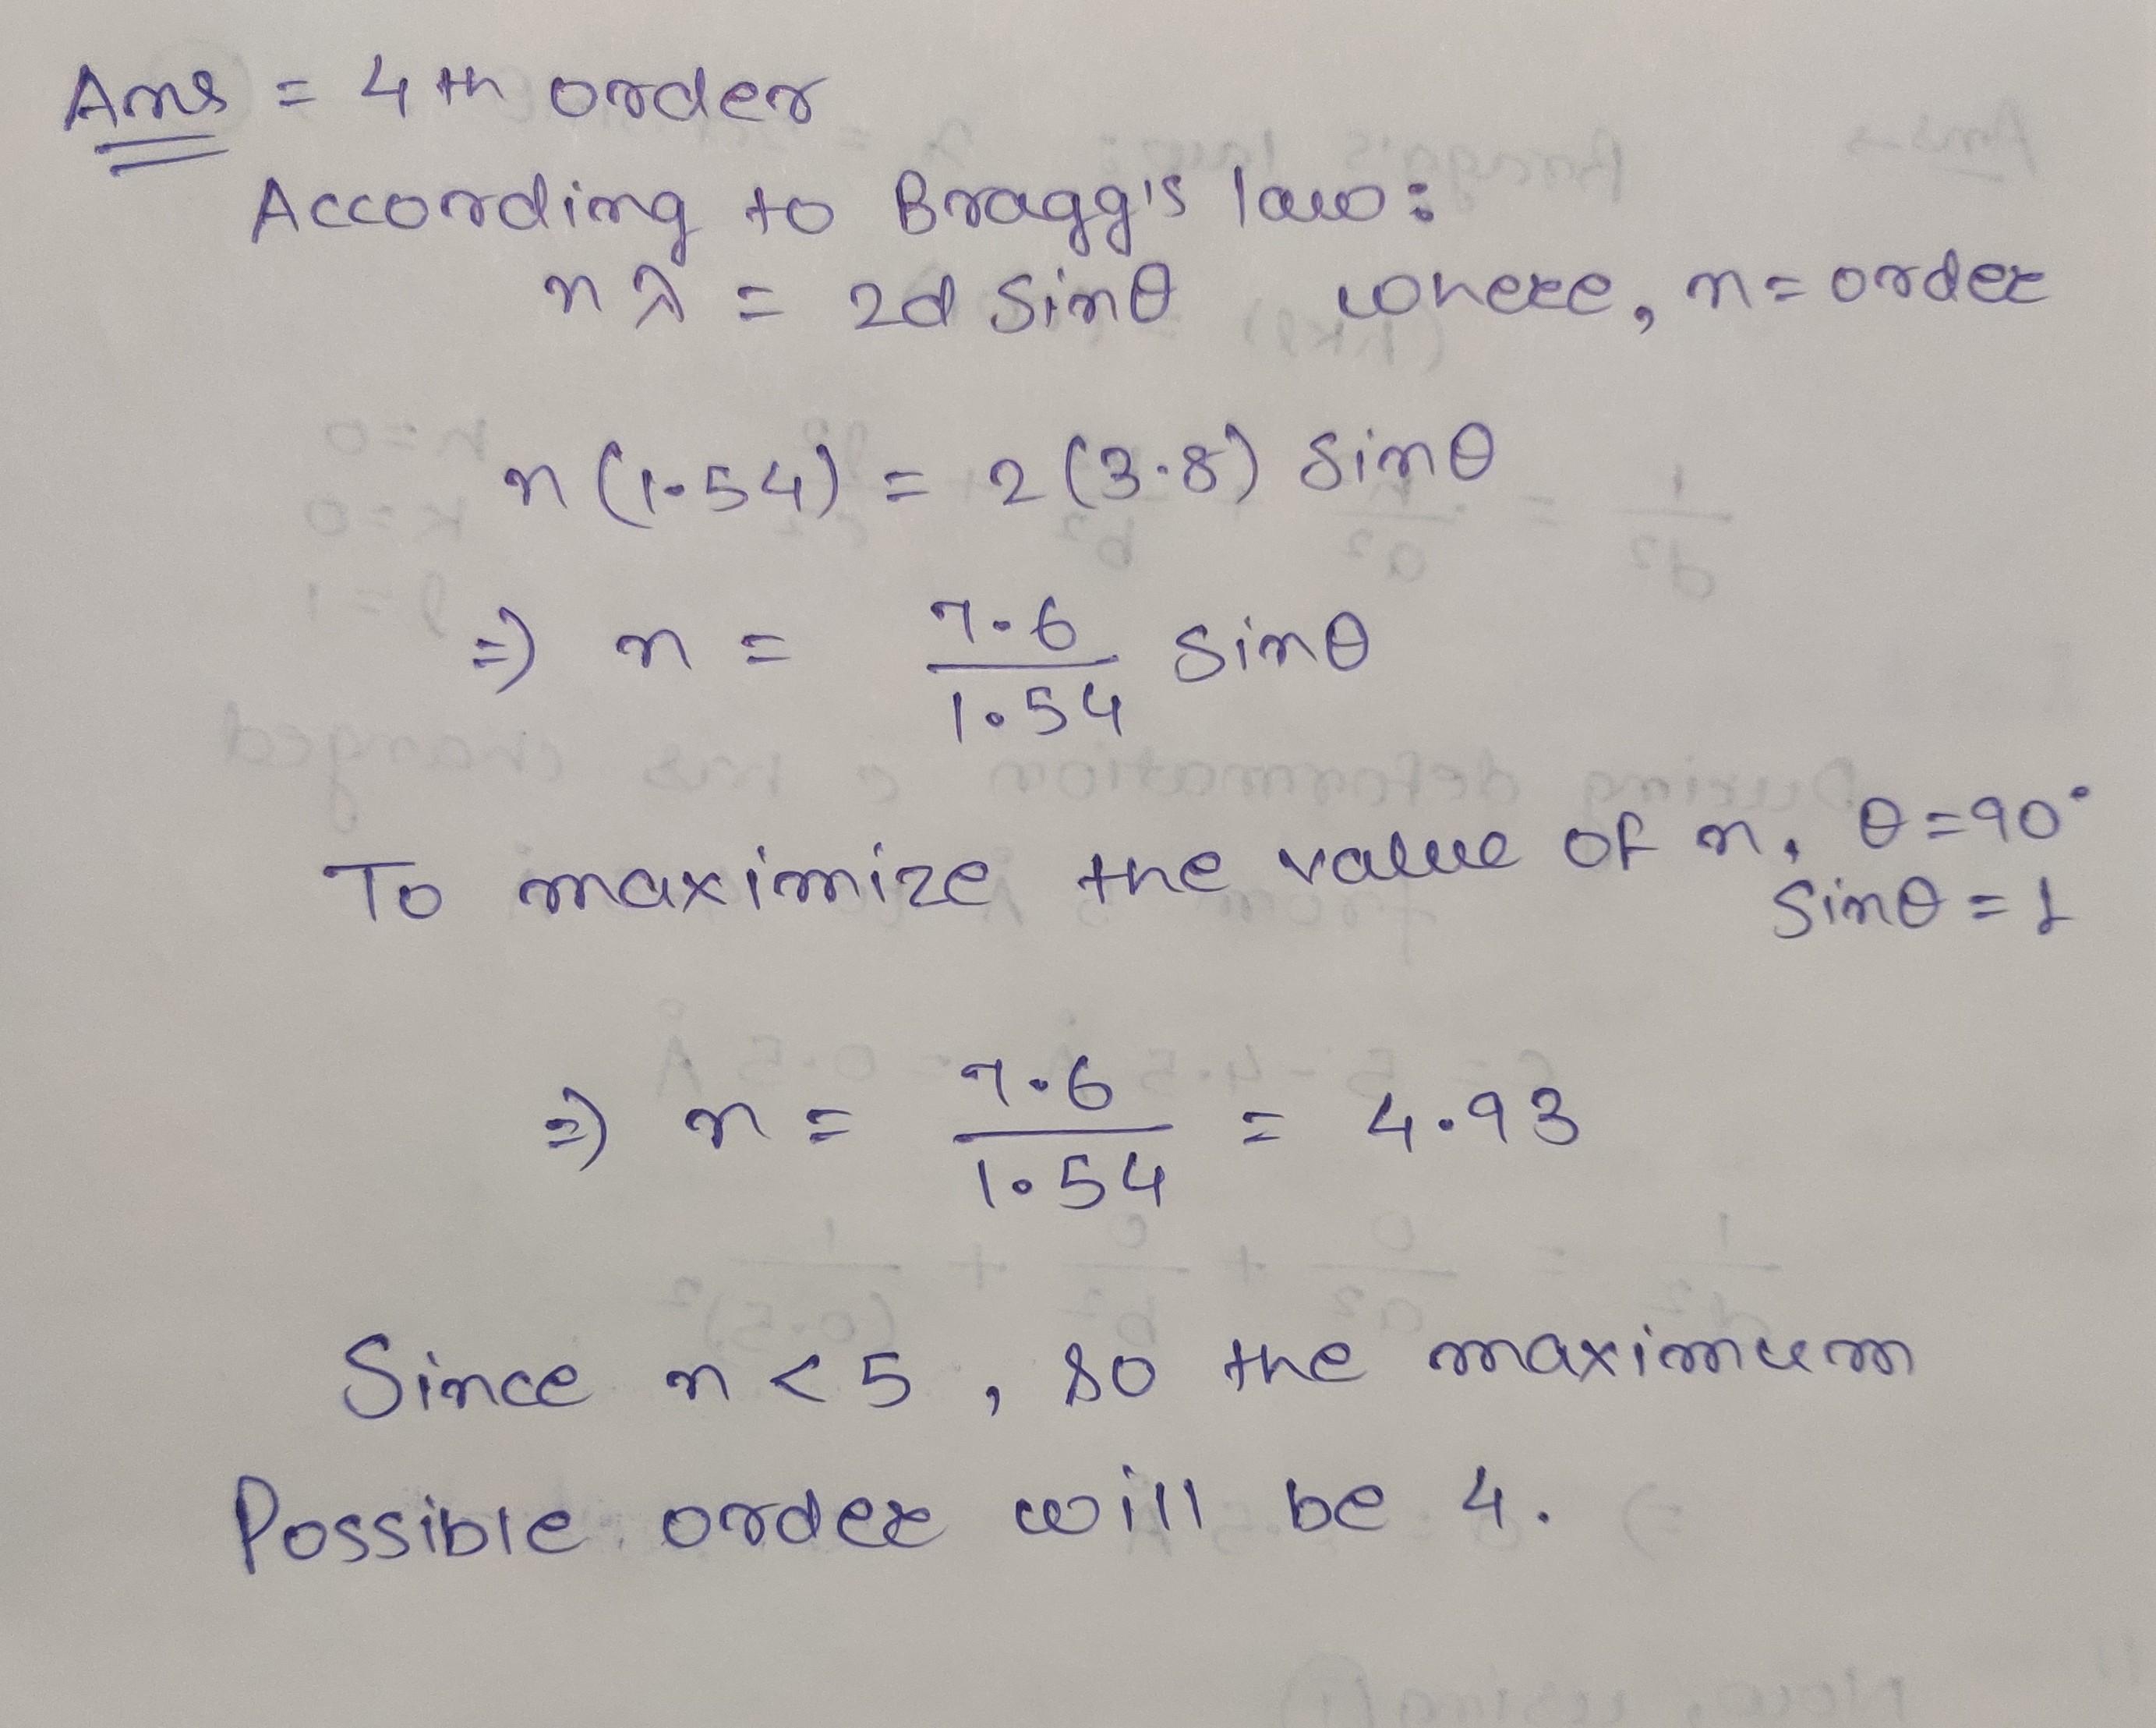 Ans = 4th order
According to Bragg's law:
nλ = 2d Sinθ where, n = order
n (1.54) = 2 (3.8) Sinθ
⇒ n = 7.6 / 1.54 Sinθ
To maximize the value of n, θ = 90°
Sinθ = 1
⇒ n = 7.6 / 1.54 = 4.93
Since n < 5, so the maximum
Possible order will be 4.